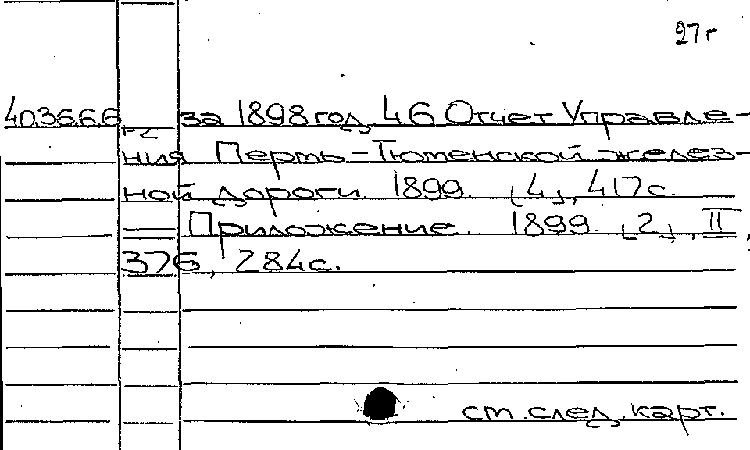 27 г
403666 за 1898 год. 46 Отчет Управле-
ния Пермь-Тюменской желез-
ной дороги. 1899. [4], 417с.
= Приложение. 1899. [2], II,
376, 284с.
см. след. карт.